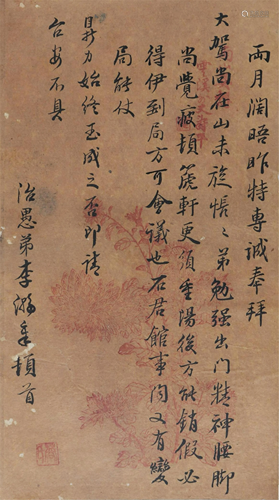 兩月闊晤昨特專誠奉拜
大駕尚在山未旋悵々弟勉强出門精神腰脚
尚覺疲頓篪軒更須重陽後方能銷假必
得伊到局方可會議也石君館事聞又有變
局能仗
鼎力始終玉成之否即請
台安不具
治愚弟李瀚章頓首